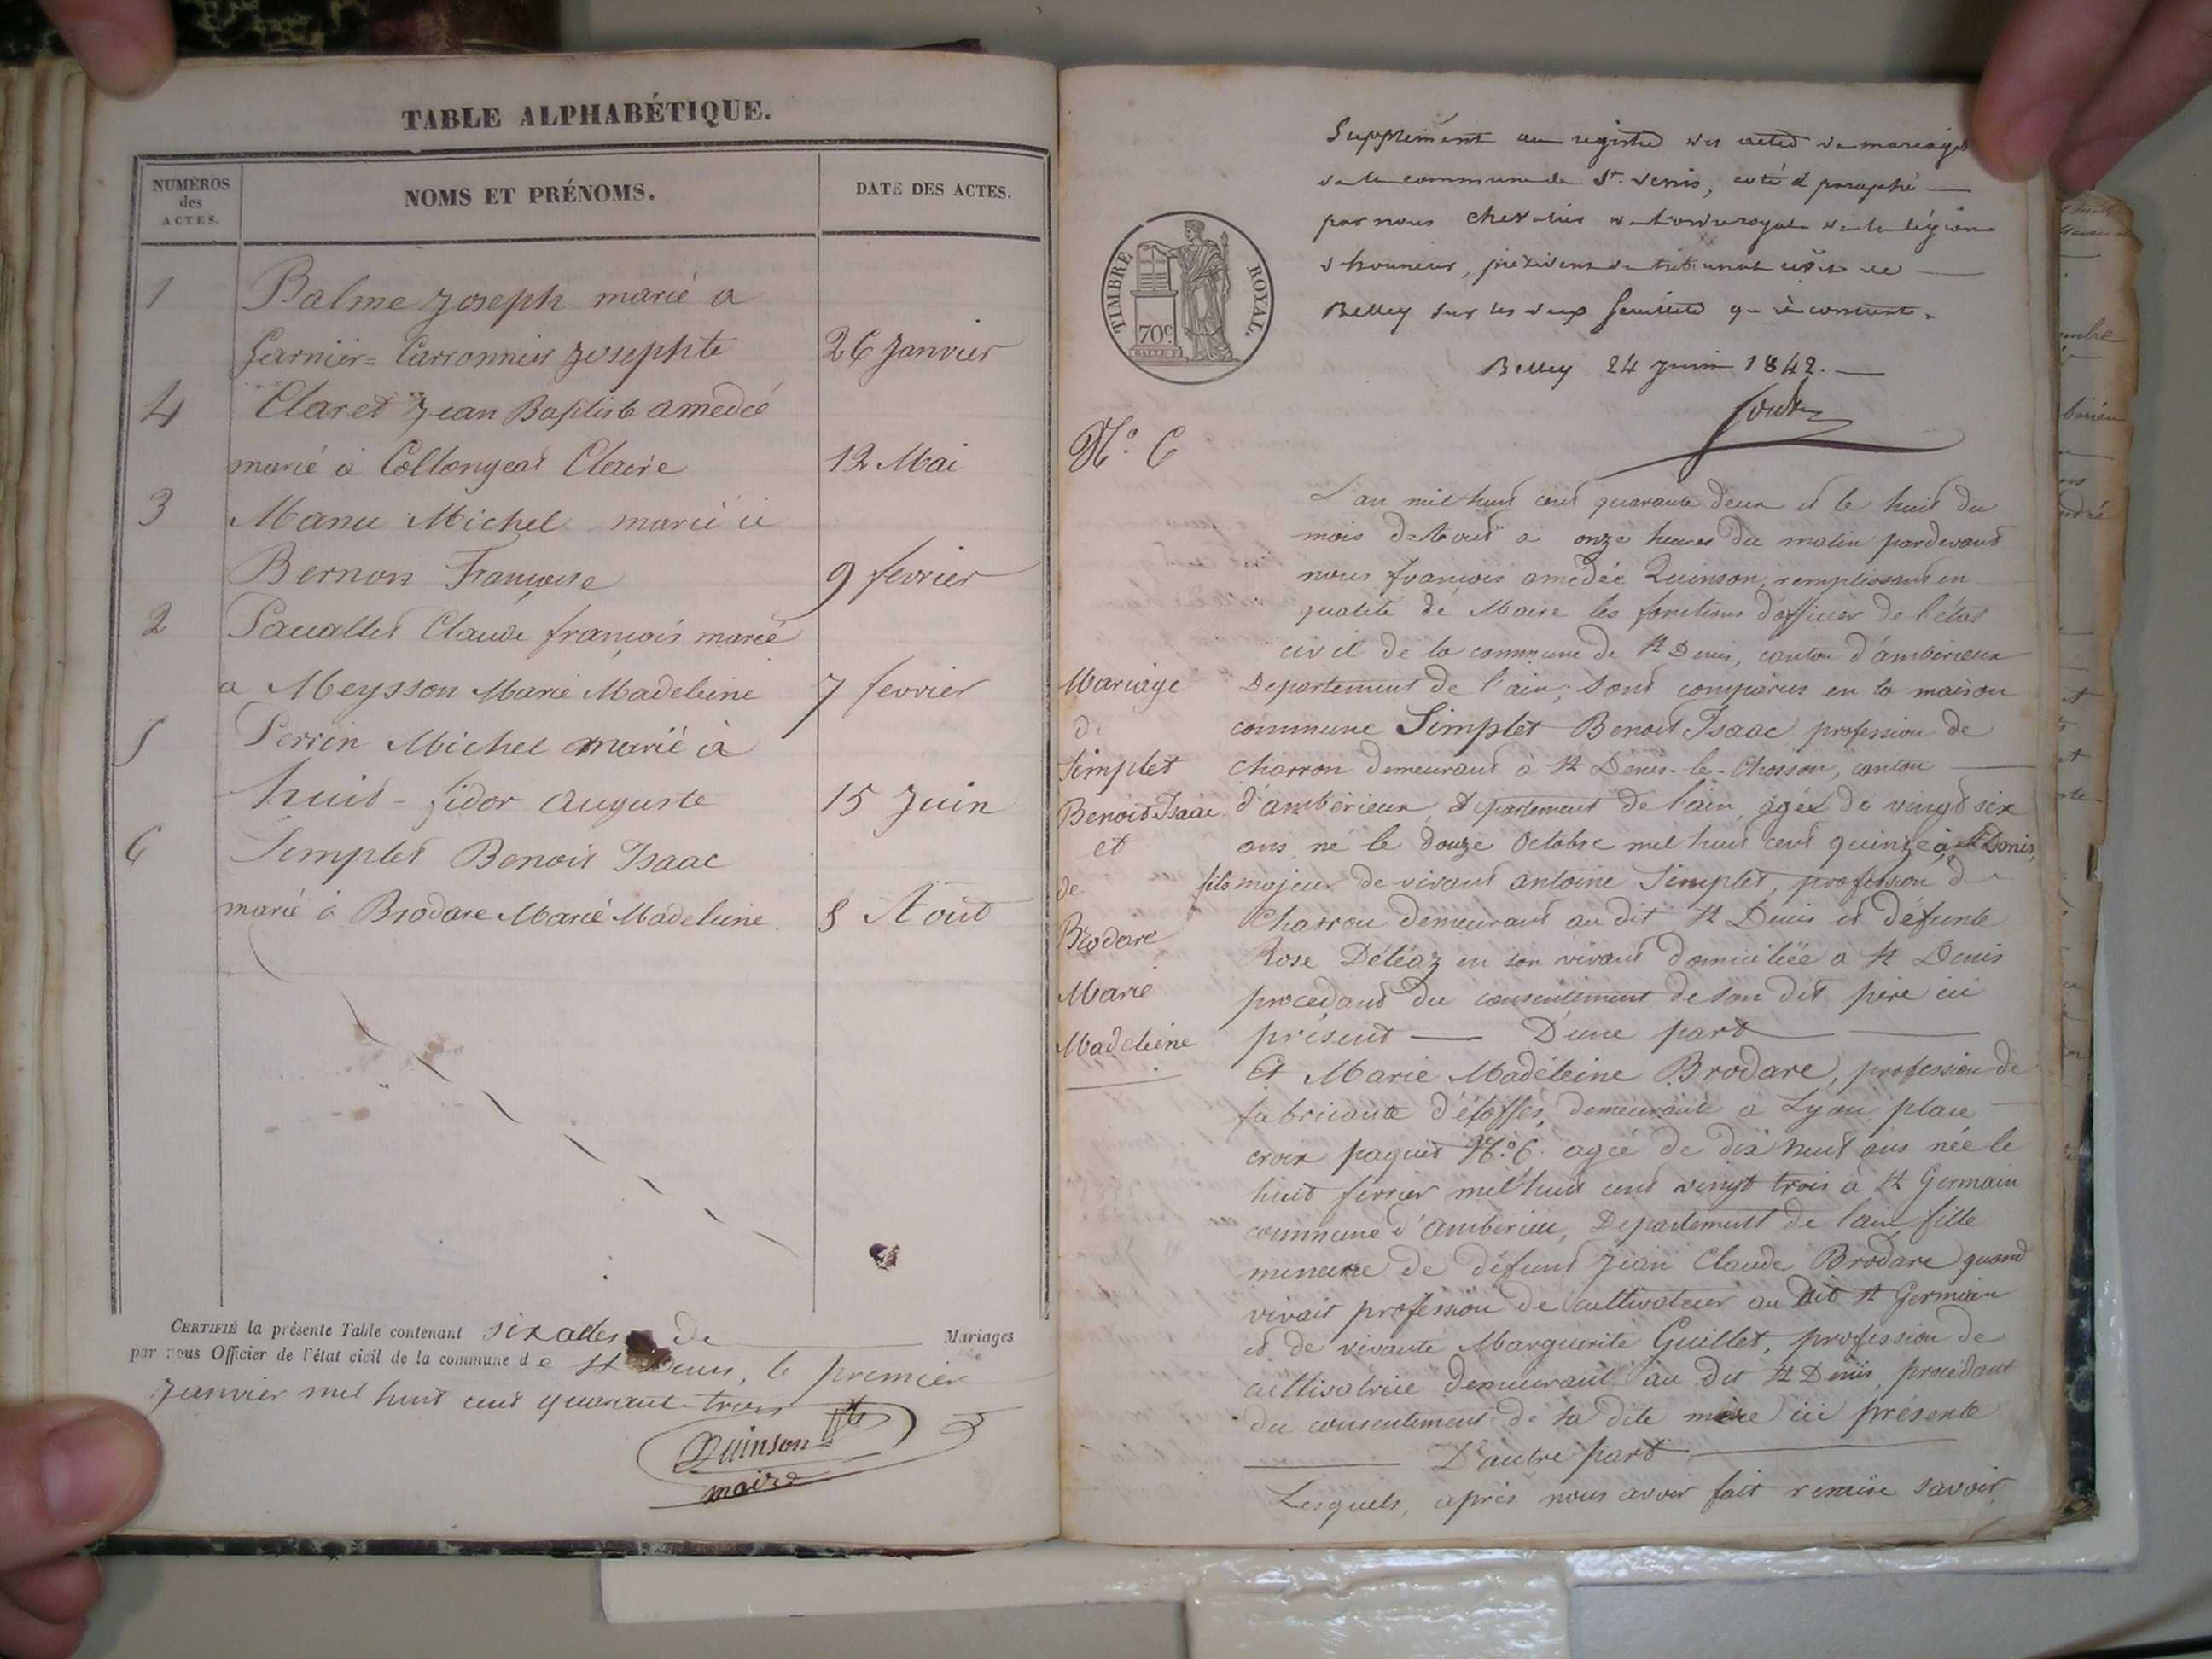 TABLE ALPHABÉTIQUE.
NUMÉROS
des
ACTES.
NOMS ET PRÉNOMS.
DATE DES ACTES.
1 Balme Joseph marié a
Garnier = Carronnier Josephte 26 Janvier
4 Claret Jean Baptiste amedée
marié à Collongeat Claire 12 Mai
3 Manu Michel marié à
Bernon Françoise 9 fevrier
2 Pauallet Claude françois marié
a Meysson Marie Madeleine 7 fevrier
5 Perrin Michel marié à
huit - fidor Auguste 15 Juin
6 Simplet Benoit Isaac
marié à Brodare Marie Madeleine 8 Août
CERTIFIÉ la présente Table contenant six actes de Mariages
par nous Officier de l'état civil de la commune de St Denis, le premier
Janvier mil huit cent quarant-trois
Quinson
maire
Supplément au registre des actes de mariages
de la commune de St. Denis, coté & paraphé
par nous chevalier de l'ordre royal de la légion
d'honneur, président du tribunal civil de
Belley sur les deux feuillets qu'il contient.
Belley 24 juin 1842.
TIMBRE ROYAL.
70c.
N.° 6
L'an mil huit cent quarante deux et le huit du
mois d'Août a onze heures du matin pardevant
nous françois amédée Quinson, remplissant en
qualité de Maire les fonctions d'officier de l'état
civil de la commune de St Denis, canton d'ambérieux
Departement de l'ain; sont comparus en la maison
commune Simplet Benoit Isaac profession de
charron demeurant à St Denis-le-Chosson, canton
d'ambérieux, departement de l'ain, agé de vingt six
ans, né le douze Octobre mil huit cent quinze à St Denis,
fils majeur de vivant antoine Simplet, profession de
Charron demeurant au dit St Denis et défunte
Rose Déléaz en son vivant domiciliée a St Denis
procedant du consentement de son dit père ici
présent — D'une part
Mariage
de
Simplet
Benoit Isaac
et
de
Brodare
Marie
Madeleine
Et Marie Madéleine Brodare, profession de
fabricante d'étoffes, demeurante a Lyon place
croix paquet N.° 6. agée de dix neuf ans née le
huit fevrier mil huit cent vingt trois à St Germain
commune d'Ambérieu, Departement de l'ain fille
mineure de défunt Jean Claude Brodare quand
vivait profession de cultivateur au dit St Germain
et de vivante Marguerite Guillet, profession de
cultivatrice demeurant au dit St Denis, procédant
du consentement de sa dite mère ici présente
D'autre part
Lesquels, après nous avoir fait remise savoir